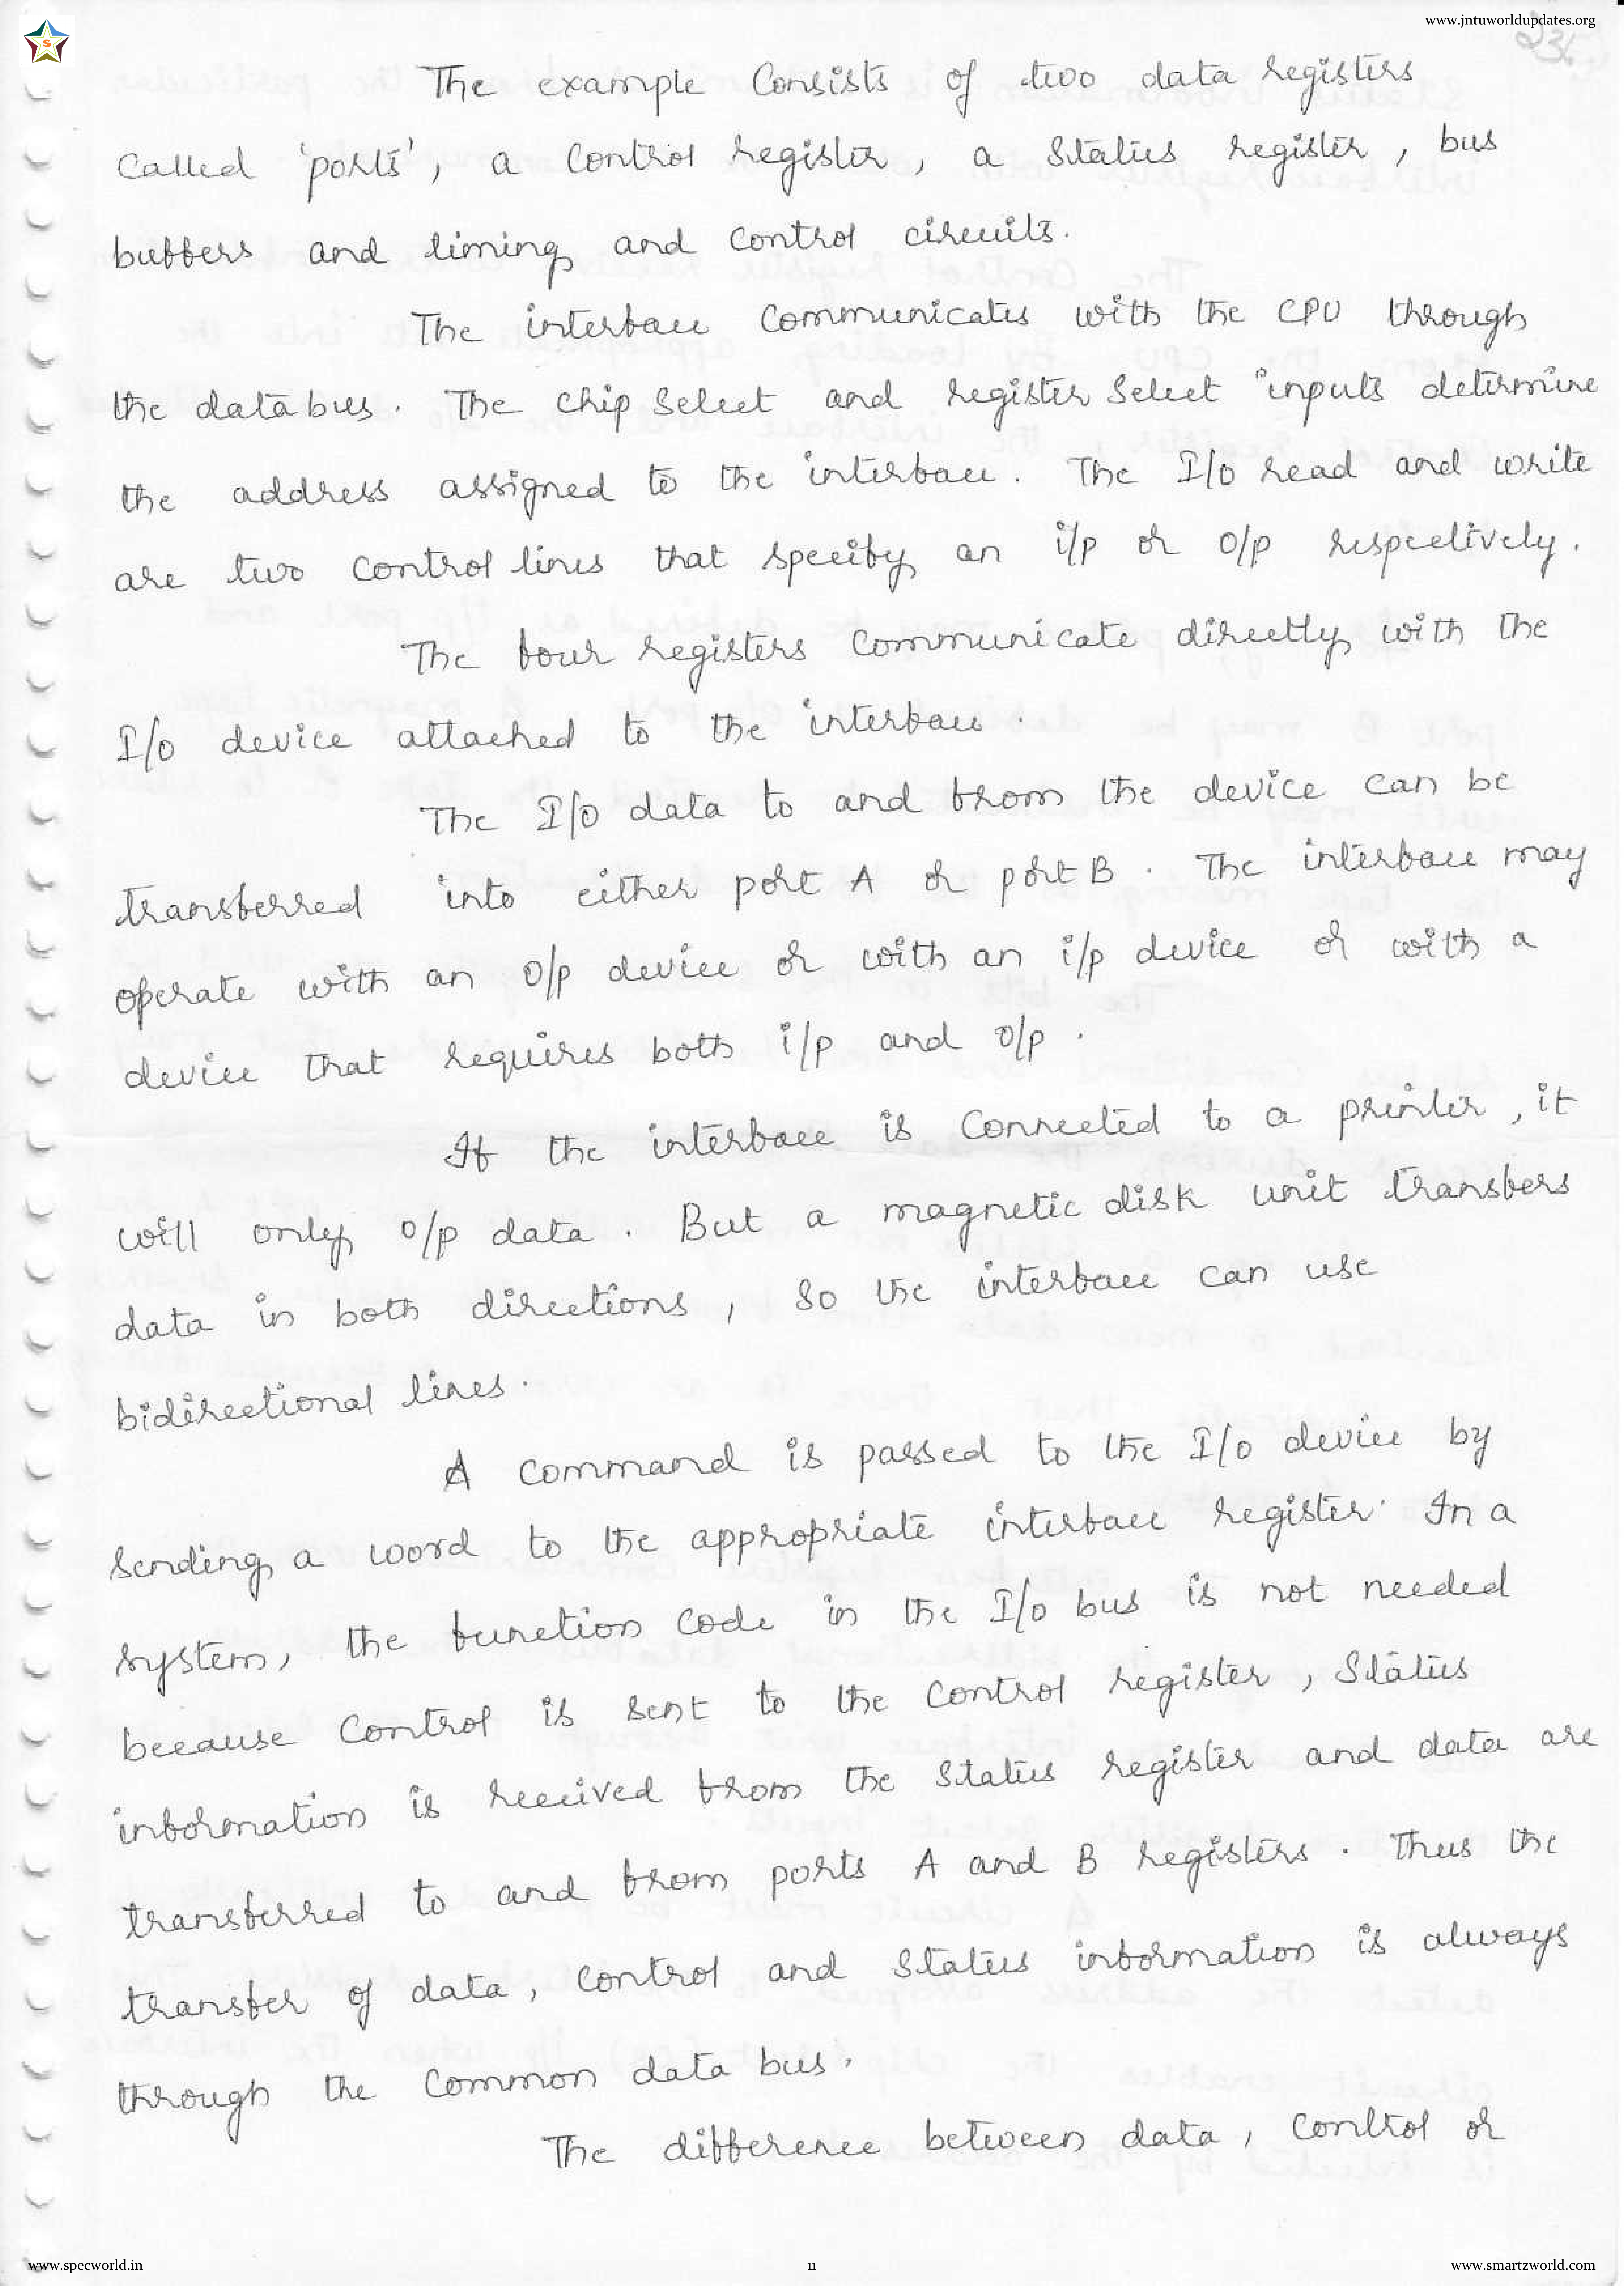 www.jntuworldupdates.org
S
The example Consists of two data registers
called 'ports', a control register, a status register, bus
buffers and timing and control circuits.
The interface communicates with the CPU through
the data bus. The chip select and register select inputs determine
the address assigned to the interface. The I/o read and write
are two control lines that specify an i/p or o/p respectively.
The four registers communicate directly with the
I/o device attached to the interface.
The I/o data to and from the device can be
transferred into either port A or port B. The interface may
operate with an o/p device or with an i/p device or with a
device that requires both i/p and o/p.
If the interface is connected to a printer, it
will only o/p data. But a magnetic disk unit transfers
data in both directions, so the interface can use
bidirectional lines.
A command is passed to the I/o device by
sending a word to the appropriate interface register. In a
system, the function code in the I/o bus is not needed
because control is sent to the control register, status
information is received from the status register and data are
transferred to and from ports A and B registers. Thus the
transfer of data, control and status information is always
through the common data bus.
The difference between data, control or
www.specworld.in 11 www.smartzworld.com